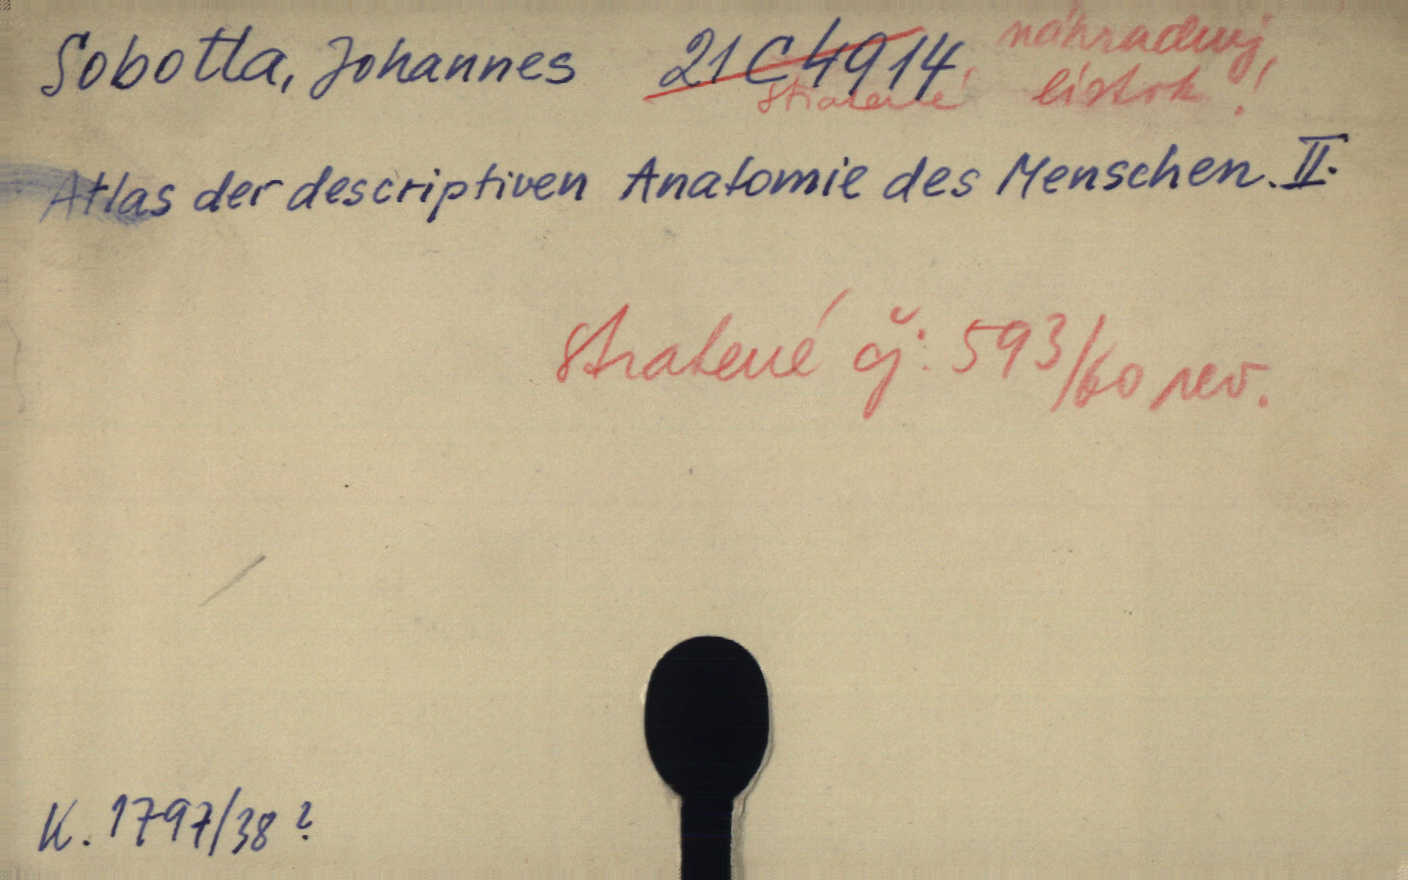 Sobotta, Johannes 21 C 4914, náhradný
stratené! lístok!
Atlas der descriptiven Anatomie des Menschen. II.
stratené čj: 593/60 rev.
K. 1797/38 ?